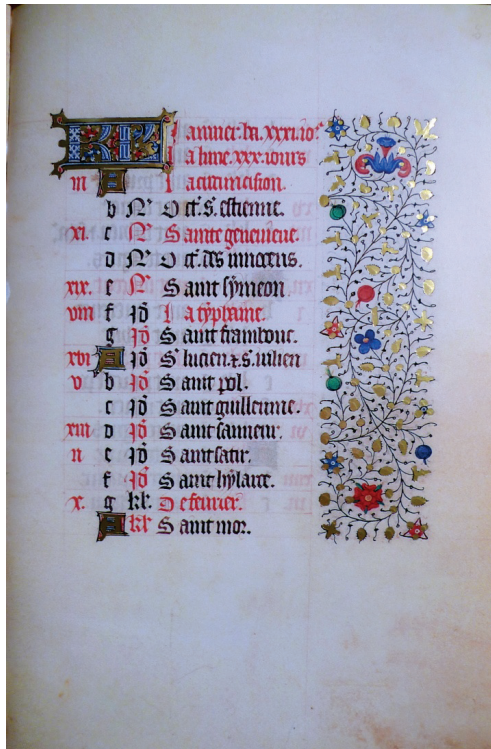 KL Januier. ha. xxxi. ior.
La lune. xxx. iours
iii A La circumcision.
b N. Oct. s. estienne.
xi. c N. Sainte geneuieue.
d N. Oct. des innocens.
xix. e N. Saint symeon.
viii f N. La typhaine.
g id Saint frambout.
xvi A id S. lucien. & s. iulien
v b id Saint pol.
c id Saint guillerme.
xiii d id Saint sauueur.
ii e id Saint satir.
f id Saint hylaire.
x. g kl. De feurier.
A kl Saint mor.